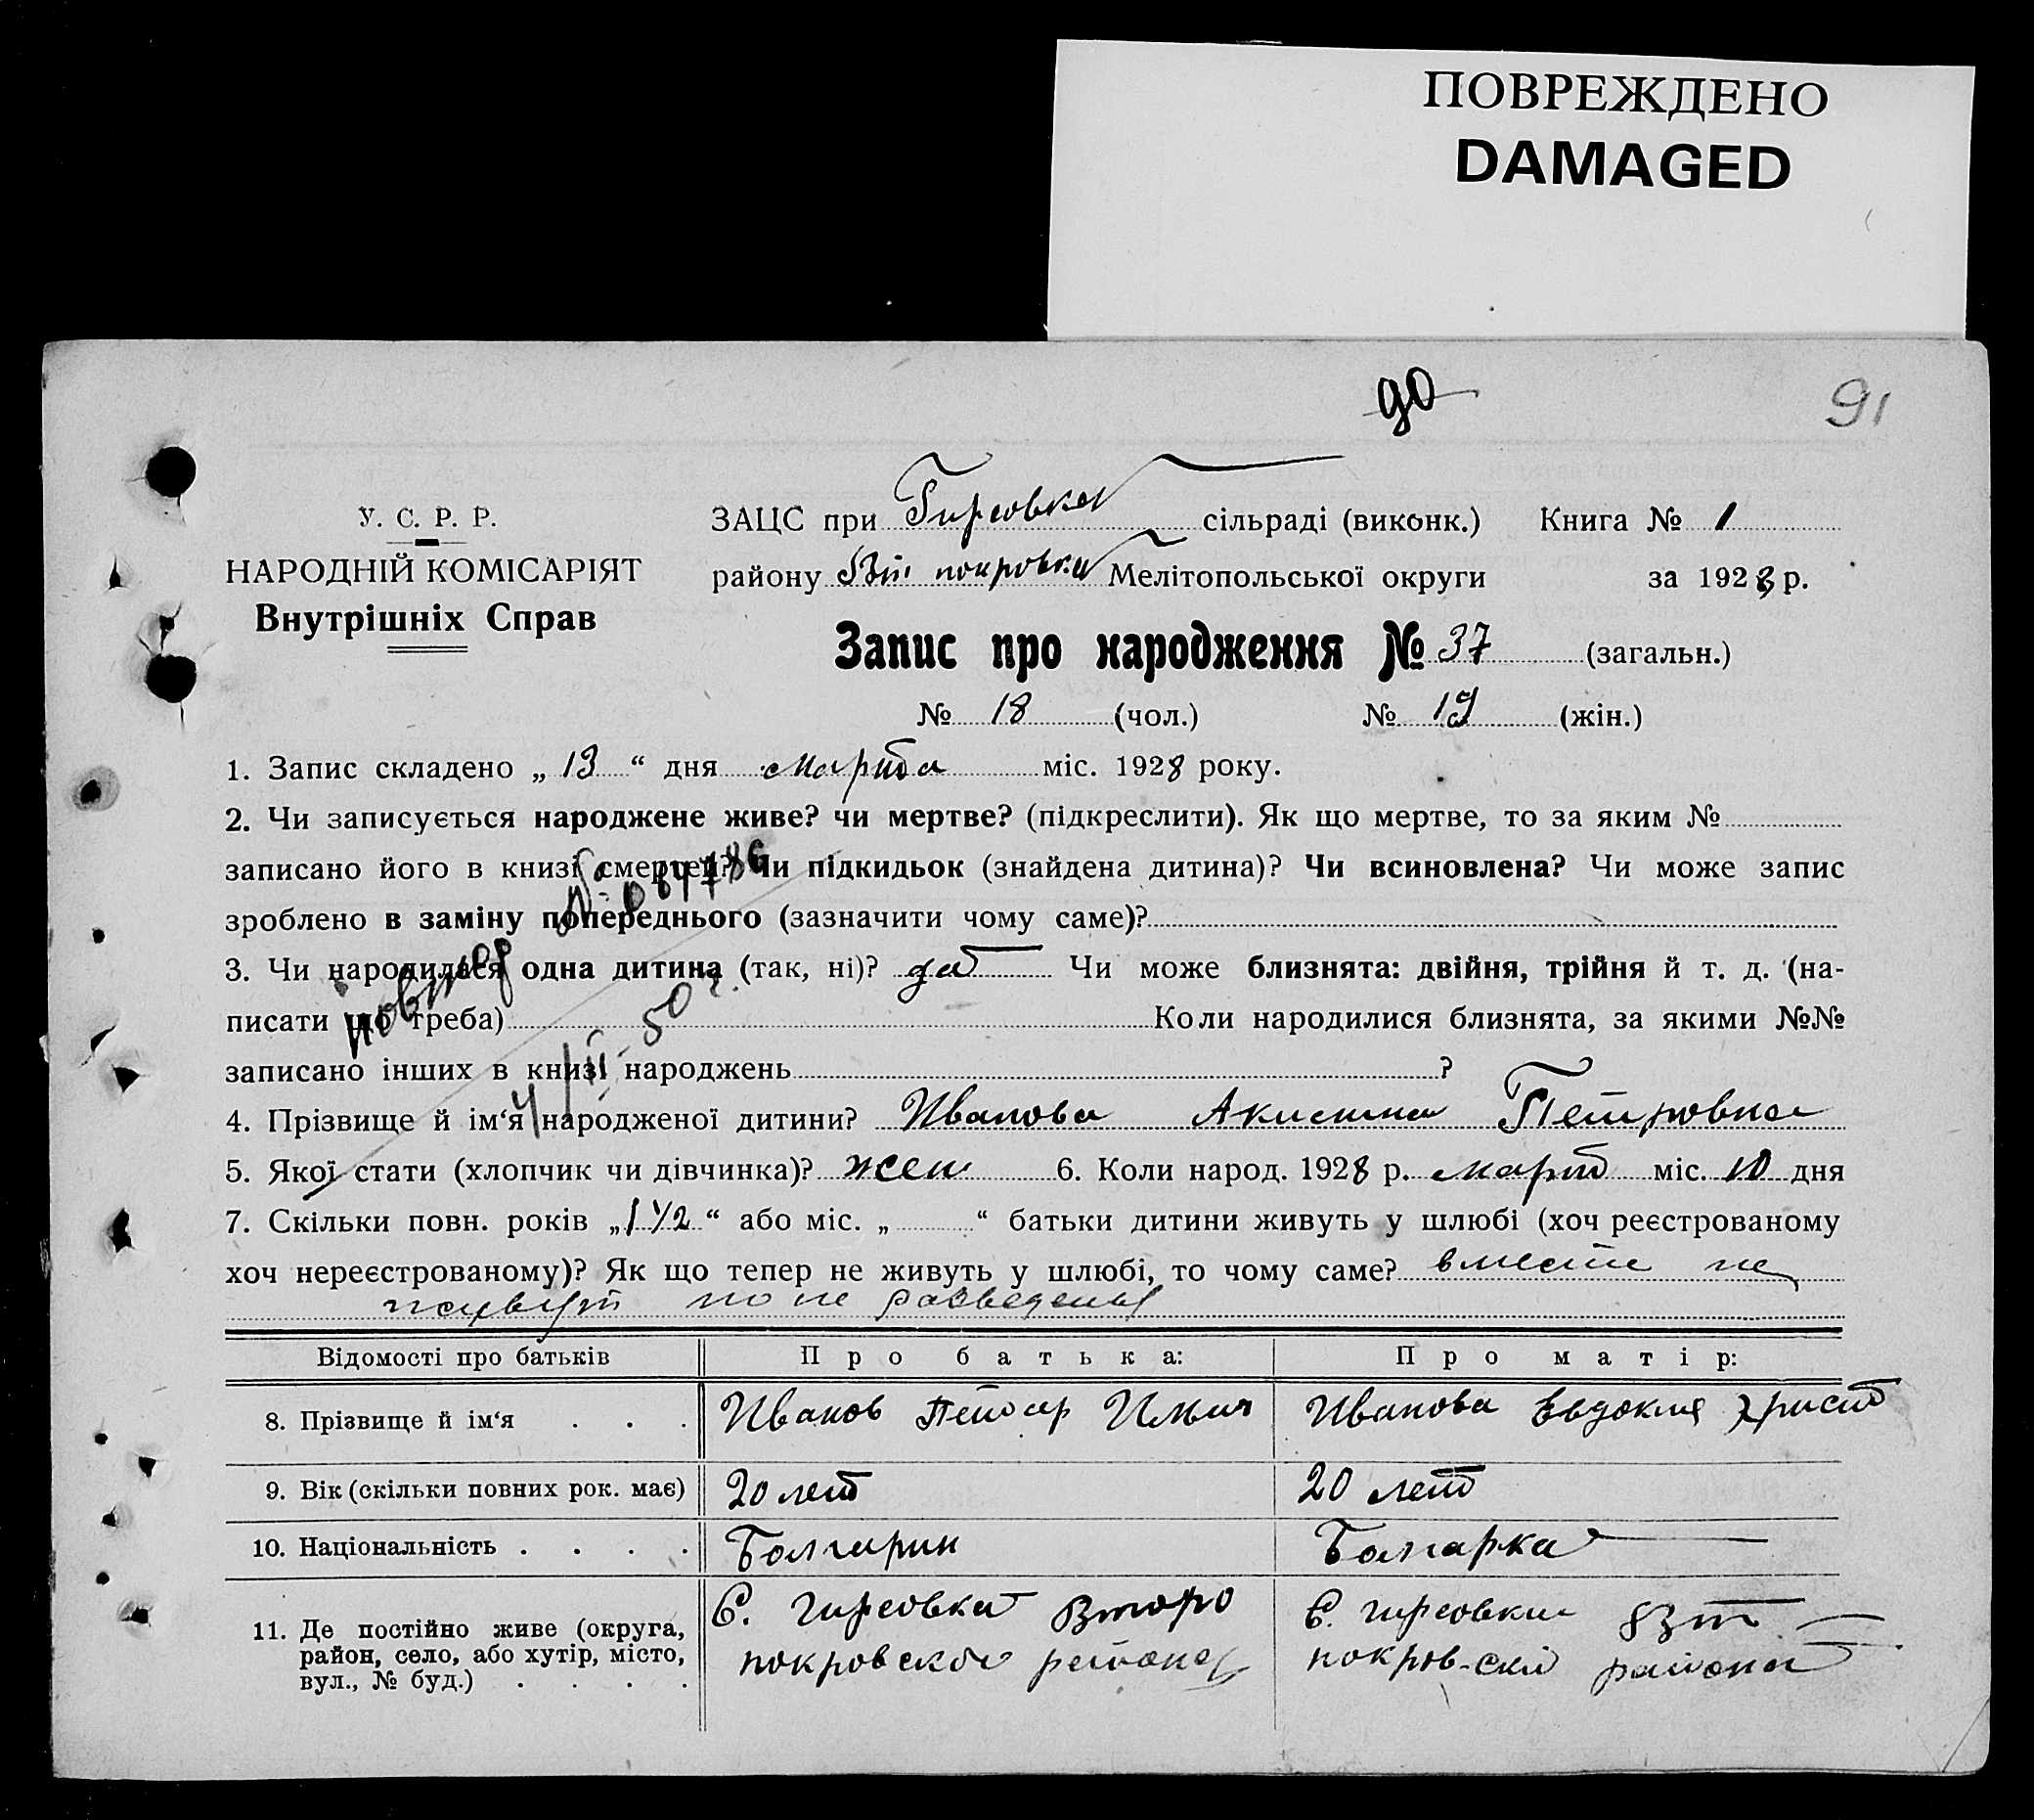 ПОВРЕЖДЕНО
DAMAGED
90
91
У. С. Р. Р.
НАРОДНІЙ КОМІСАРІЯТ
Внутрішніх Справ
ЗАЦС при Гирсовка сільраді (виконк.) Книга № 1
району Вт. покровка Мелітопольської округи за 1928 р.
Запис про народження № 37 (загальн.)
№ 18 (чол.) № 19 (жін.)
1. Запис складено „ 13 “ дня марта міс. 1928 року.
2. Чи записується народжене живе? чи мертве? (підкреслити). Як що мертве, то за яким №
записано його в книзі смертей? Чи підкидьок (знайдена дитина)? Чи всиновлена? Чи може запис
зроблено в заміну попереднього (зазначити чому саме)?
3. Чи народилася одна дитина (так, ні)? да Чи може близнята: двійня, трійня й т. д. (на-
писати що треба) Коли народилися близнята, за якими №№
записано інших в книзі народжень ?
повтор
4/II-50 г.
4. Прізвище й ім‘я народженої дитини? Иванова Петровна
5. Якої стати (хлопчик чи дівчинка)? жен 6. Коли народ. 1928 р. март міс. 10 дня
7. Скільки повн. років „1 1/2“ або міс. „ “ батьки дитини живуть у шлюбі (хоч реєстрованому
хоч нереєстрованому)? Як що тепер не живуть у шлюбі, то чому саме? вместе не
живут но не разведены
Відомості про батьків Про батька: Про матір:
8. Прізвище й ім‘я . . . Иванов Петр Ильич Иванова Евдокия Христ
9. Вік (скільки повних рок. має) 20 лет 20 лет
10. Національність . . . . Болгарин Болгарка
11. Де постійно живе (округа,
район, село, або хутір, місто,
вул., № буд.) . . . .
С. Гирсовка Второ
покровского района
С. Гирсовка Вт
покров-ский района